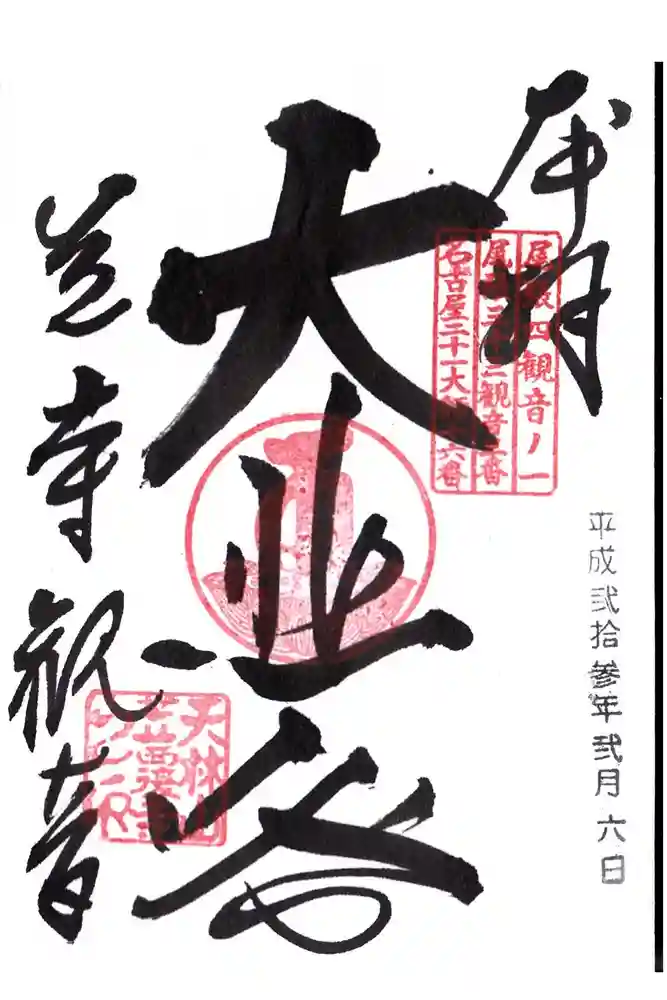 奉拝
尾張四観音ノ一
尾張三十三観音三番
名古屋二十一大師十六番
大悲
笠寺観音
天林山
平成弐拾参年弐月六日